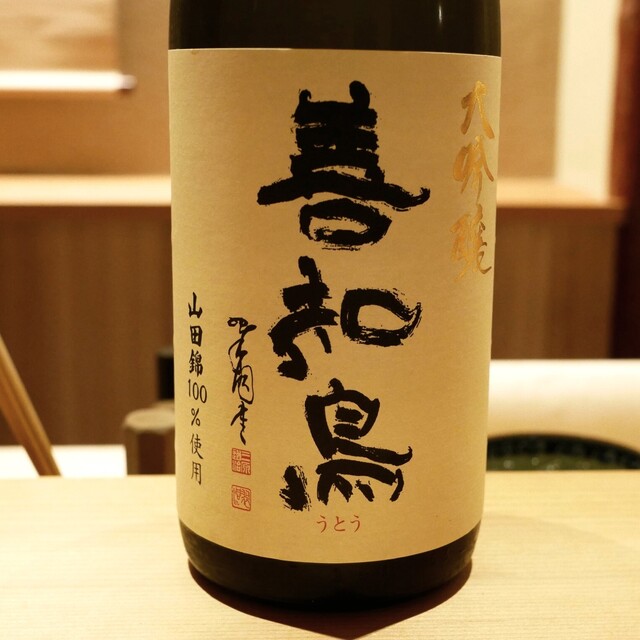 大吟醸
善知鳥
うとう
山田錦100%使用